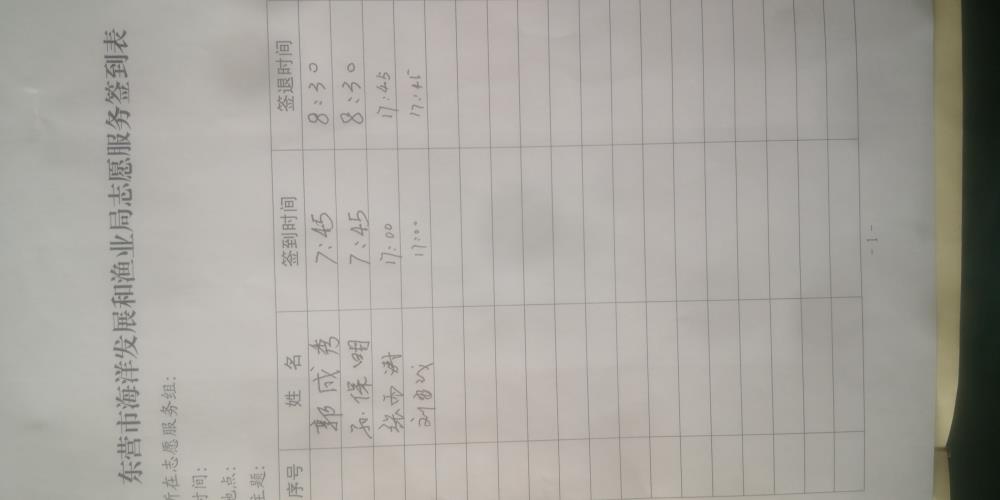 东营市海洋发展和渔业局志愿服务签到表
所在志愿服务组:
时间:
地点:
主题:
序号 姓名 签到时间 签退时间
郭成秀 7:45 8:30
孙保明 7:45 8:30
张 17:00 17:45
刘 17:00 17:45
- 1 -